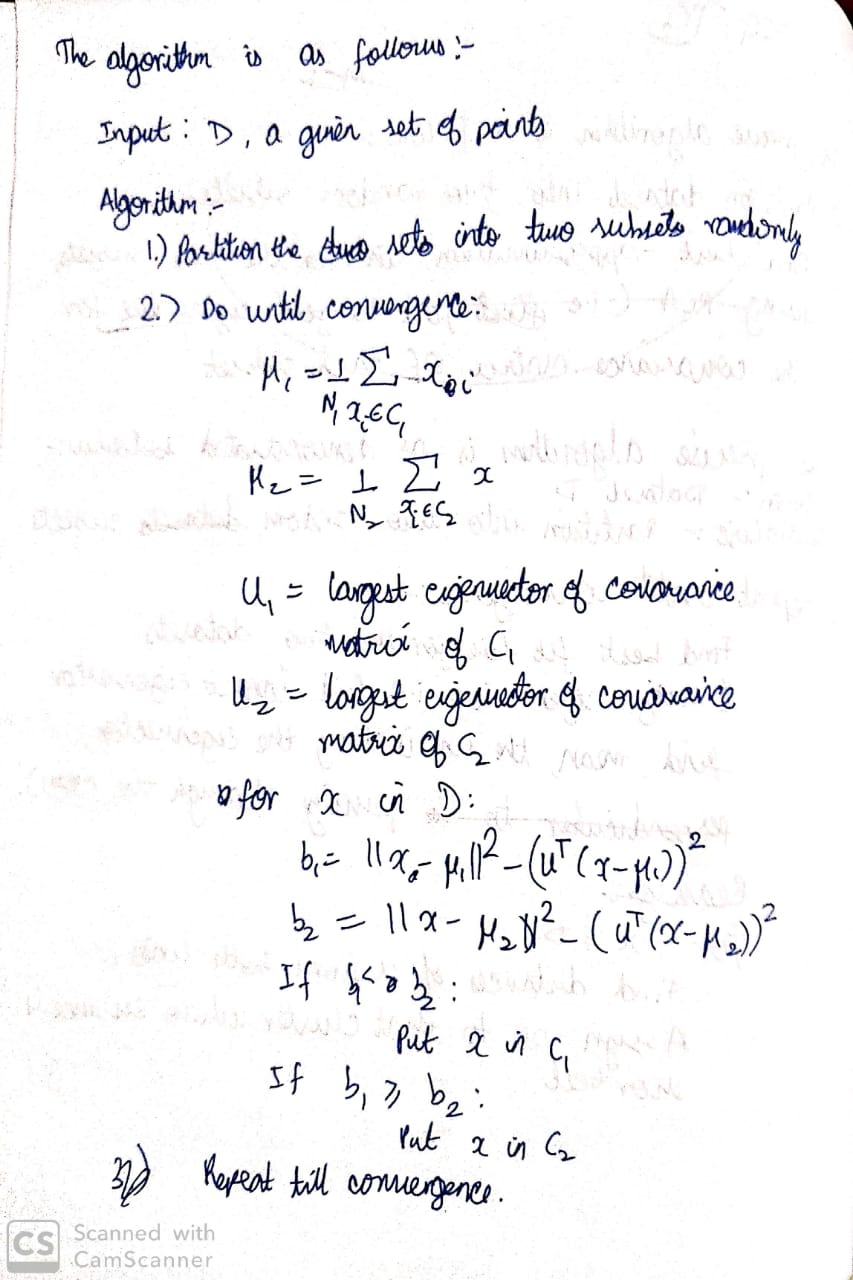 The algorithm is as follows :-
Input : D, a given set of points
Algorithm :-
1.) Partition the sets into two subsets randomly
2.) Do until convergence:
μ₁ = 1/N₁ Σ_{xᵢ∈C₁} xᵢ
μ₂ = 1/N₂ Σ_{xᵢ∈C₂} x
u₁ = largest eigenvector of covariance
matrix of C₁
u₂ = largest eigenvector of covariance
matrix of C₂
for x in D:
b₁ = ||x - μ₁||² - (uᵀ(x-μ₁))²
b₂ = ||x - μ₂||² - (uᵀ(x-μ₂))²
If b₁ < b₂ :
Put x in C₁
If b₁ ≥ b₂ :
Put x in C₂
3) Repeat till convergence.
CS Scanned with
CamScanner